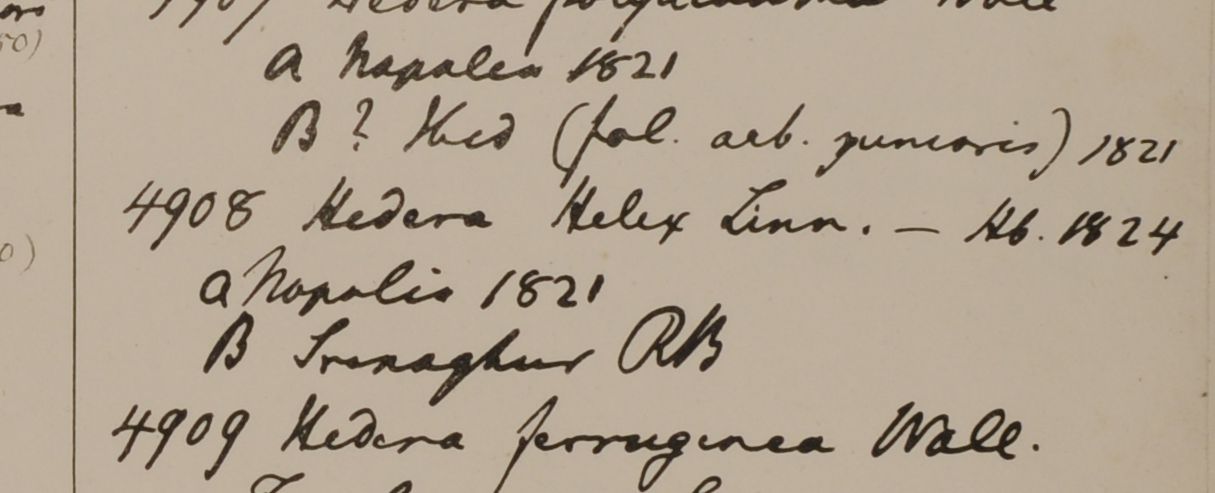 4907 Hedera polyacantha Wall
a Napalea 1821
B ? Ibid (fol. arb. junioris) 1821
4908 Hedera Helex Linn. — Hb. 1824
a Napalis 1821
B Srenaghur RB
4909 Hedera ferruginea Wall.